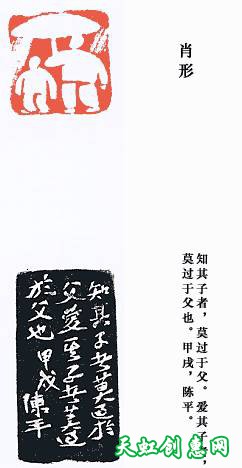 肖形
知其子者，莫过于父。爱其子
莫过于父也。甲戌，陈平。
知其子者莫過於
父愛其子者莫過
於父也 甲戌 陳平
天虹创意网